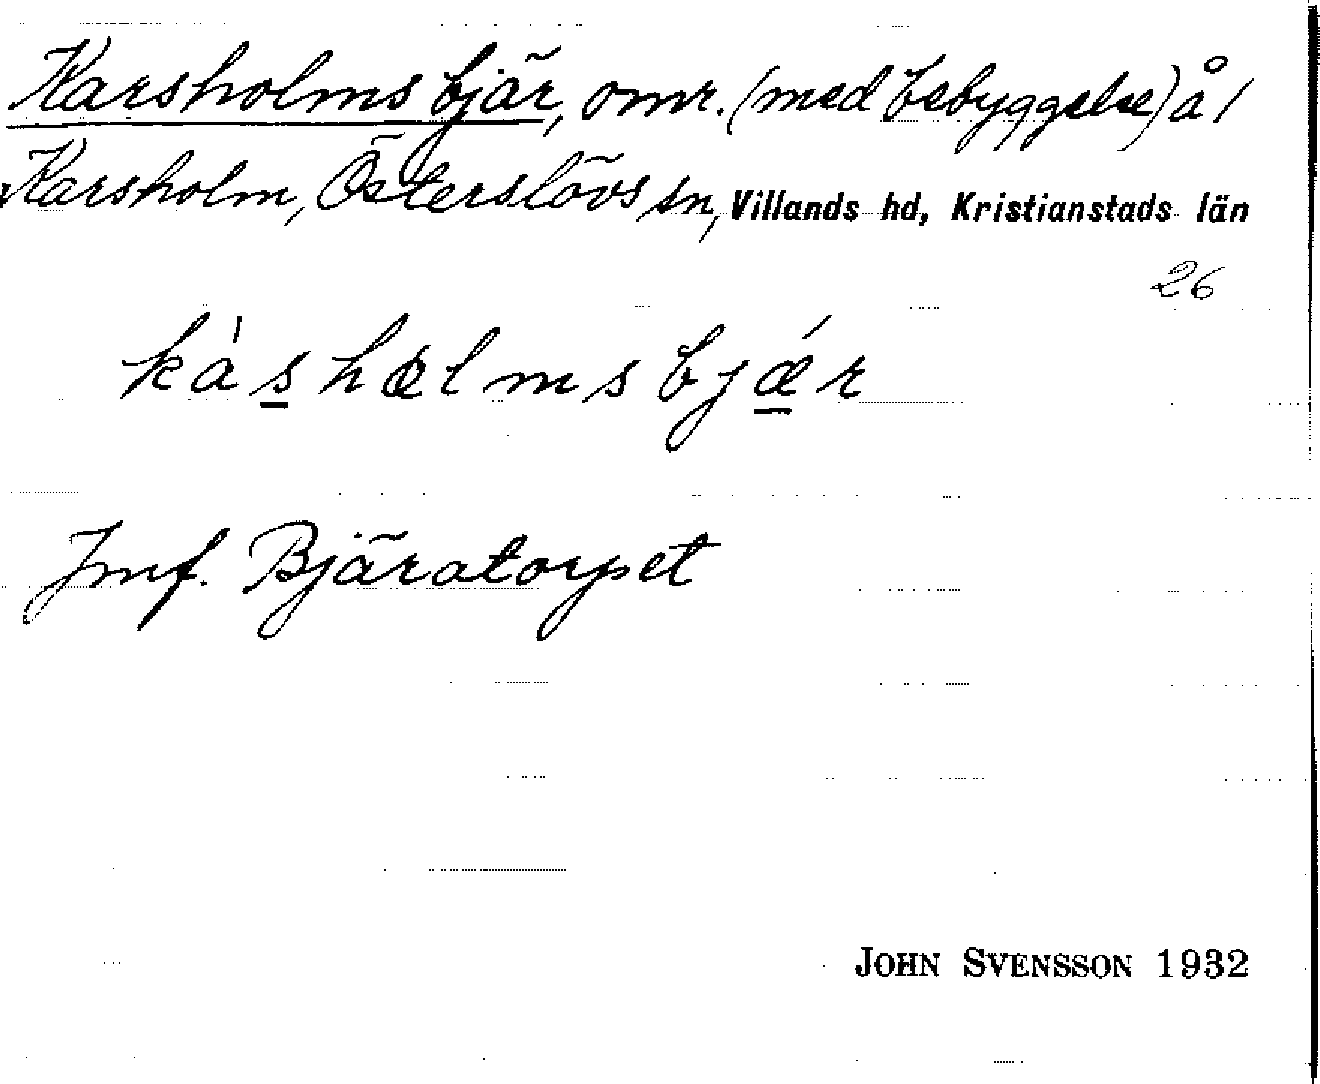 Karsholms bjär, omr. (med bebyggelse) å /
Karsholm, Österslövs sn, Villands hd, Kristianstads län
26
kàshælmsbjǽr
Jmf. Bjäratorpet
JOHN SVENSSON 1932